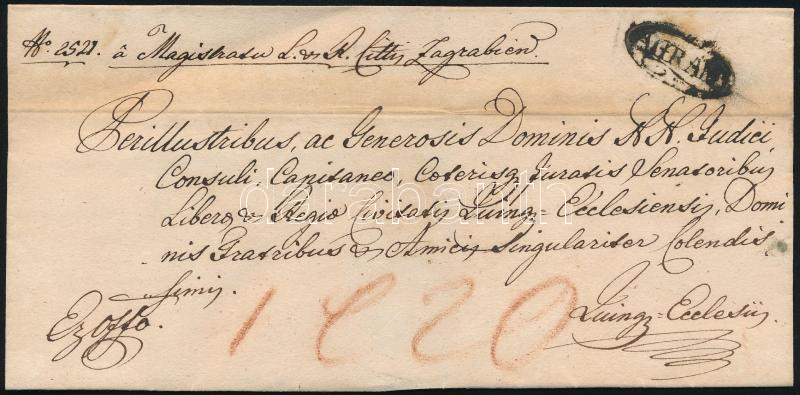 No. 2521. á Magistratu L. & R. Cittis Zagrabien.
AGRAM
Perillustribus, ac Generosis Dominis N. N. Judici,
Consuli, Capitaneo, Coterisq Juratis Senatoribus
Liberæ & Regiæ Civitatis Quinq=Ecclesiensis, Domi
nis Fratribus & Amicis Singulariter Colendis,
simis.
darabanth
Ex Offo.
1820
Quinq=Ecclesiis